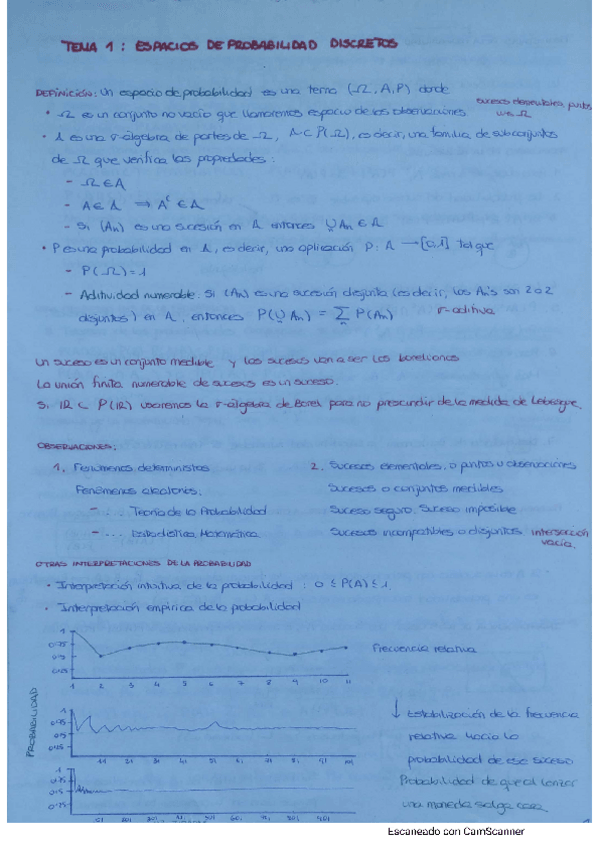 TEMA 1: ESPACIOS DE PROBABILIDAD DISCRETOS
DEFINICIÓN: Un espacio de probabilidad es una terna (Ω, A, P) donde
• Ω es un conjunto no vacío que llamaremos espacio de las observaciones
sucesos elementales, puntos,
w ∈ Ω
• A es una σ-álgebra de partes de Ω, A ⊂ P(Ω), es decir, una familia de subconjuntos
de Ω que verifica las propiedades:
- Ω ∈ A
- A ∈ A ⟹ Aᶜ ∈ A
- Si (An) es una sucesión en A entonces ∪An ∈ A
• P es una probabilidad en A, es decir, una aplicación P: A → [0,1] tal que
- P(Ω) = 1
- Aditividad numerable: Si (An) es una sucesión disjunta (es decir, los An's son 2 a 2
disjuntos) en A, entonces P(∪An) = Σ P(An) σ-aditiva
Un suceso es un conjunto medible y los sucesos van a ser los borelianos
La unión finita numerable de sucesos es un suceso.
Si IR ⊂ P(IR) usaremos la σ-álgebra de Borel para no prescindir de la medida de Lebesgue.
OBSERVACIONES:
1. Fenómenos deterministas
Fenómenos aleatorios:
- ... Teoría de la Probabilidad
- ... Estadística Matemática
2. Sucesos elementales, o puntos u observaciones
Sucesos o conjuntos medibles
Suceso seguro. Suceso imposible
Sucesos incompatibles o disjuntos intersección
vacía.
OTRAS INTERPRETACIONES DE LA PROBABILIDAD
• Interpretación intuitiva de la probabilidad: 0 ≤ P(A) ≤ 1.
• Interpretación empírica de la probabilidad
Frecuencia relativa
1 2 3 4 5 6 7 8 9 10 11
PROBABILIDAD
↓ Estabilización de la frecuencia
relativa hacia la
probabilidad de ese suceso
Probabilidad de que al lanzar
una moneda salga cara
Escaneado con CamScanner